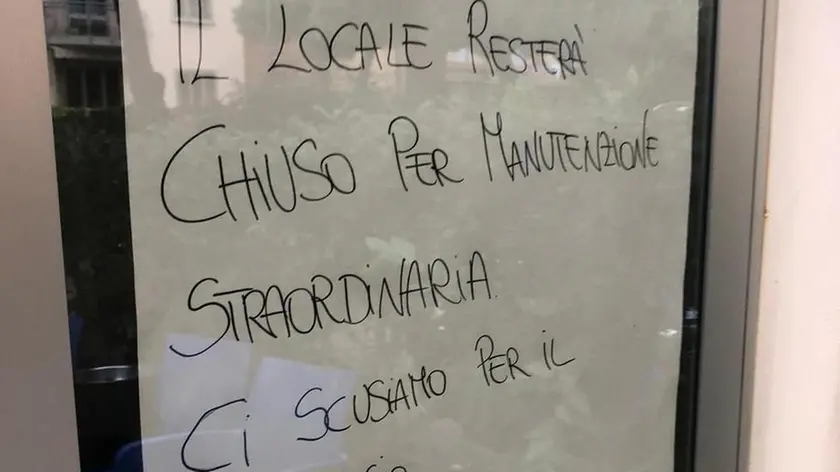 IL LOCALE RESTERÀ
CHIUSO PER MANUTENZIONE
STRAORDINARIA.
CI SCUSIAMO PER IL